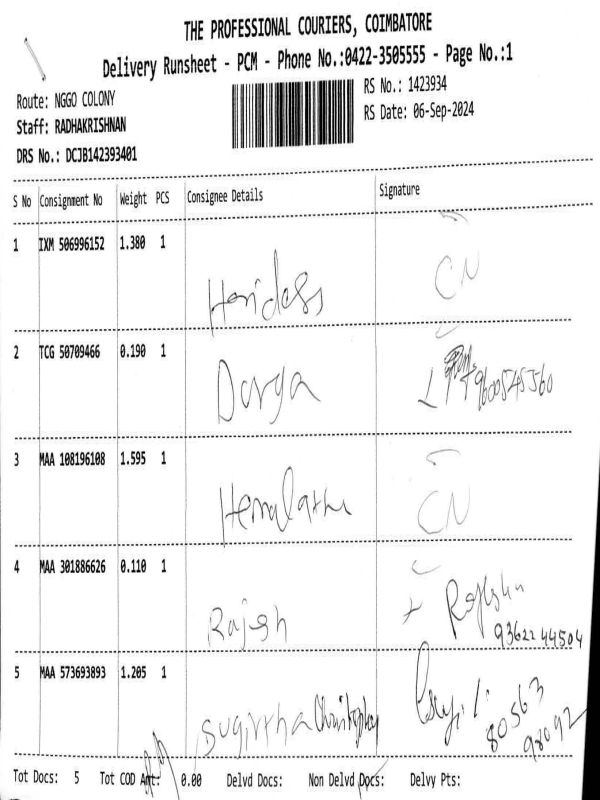 THE PROFESSIONAL COURIERS, COIMBATORE
Delivery Runsheet - PCM - Phone No.:0422-3505555 - Page No.:1
Route: NGGO COLONY
RS No.: 1423934
Staff: RADHAKRISHNAN
RS Date: 06-Sep-2024
DRS No.: DCJB142393401
S No Consignment No Weight PCS Consignee Details Signature
1 IXM 506996152 1.380 1
Haridass CN
2 TCG 50709466 0.190 1
Durga 9600545360
3 MAA 108196108 1.595 1
Hemalatha CN
4 MAA 301886626 0.110 1
Rajesh
9362244504
5 MAA 573693893 1.205 1
Sugirtha Christopher
80563
98092
Tot Docs: 5 Tot COD Amt: 0.00 Delvd Docs: Non Delvd Docs: Delvy Pts: